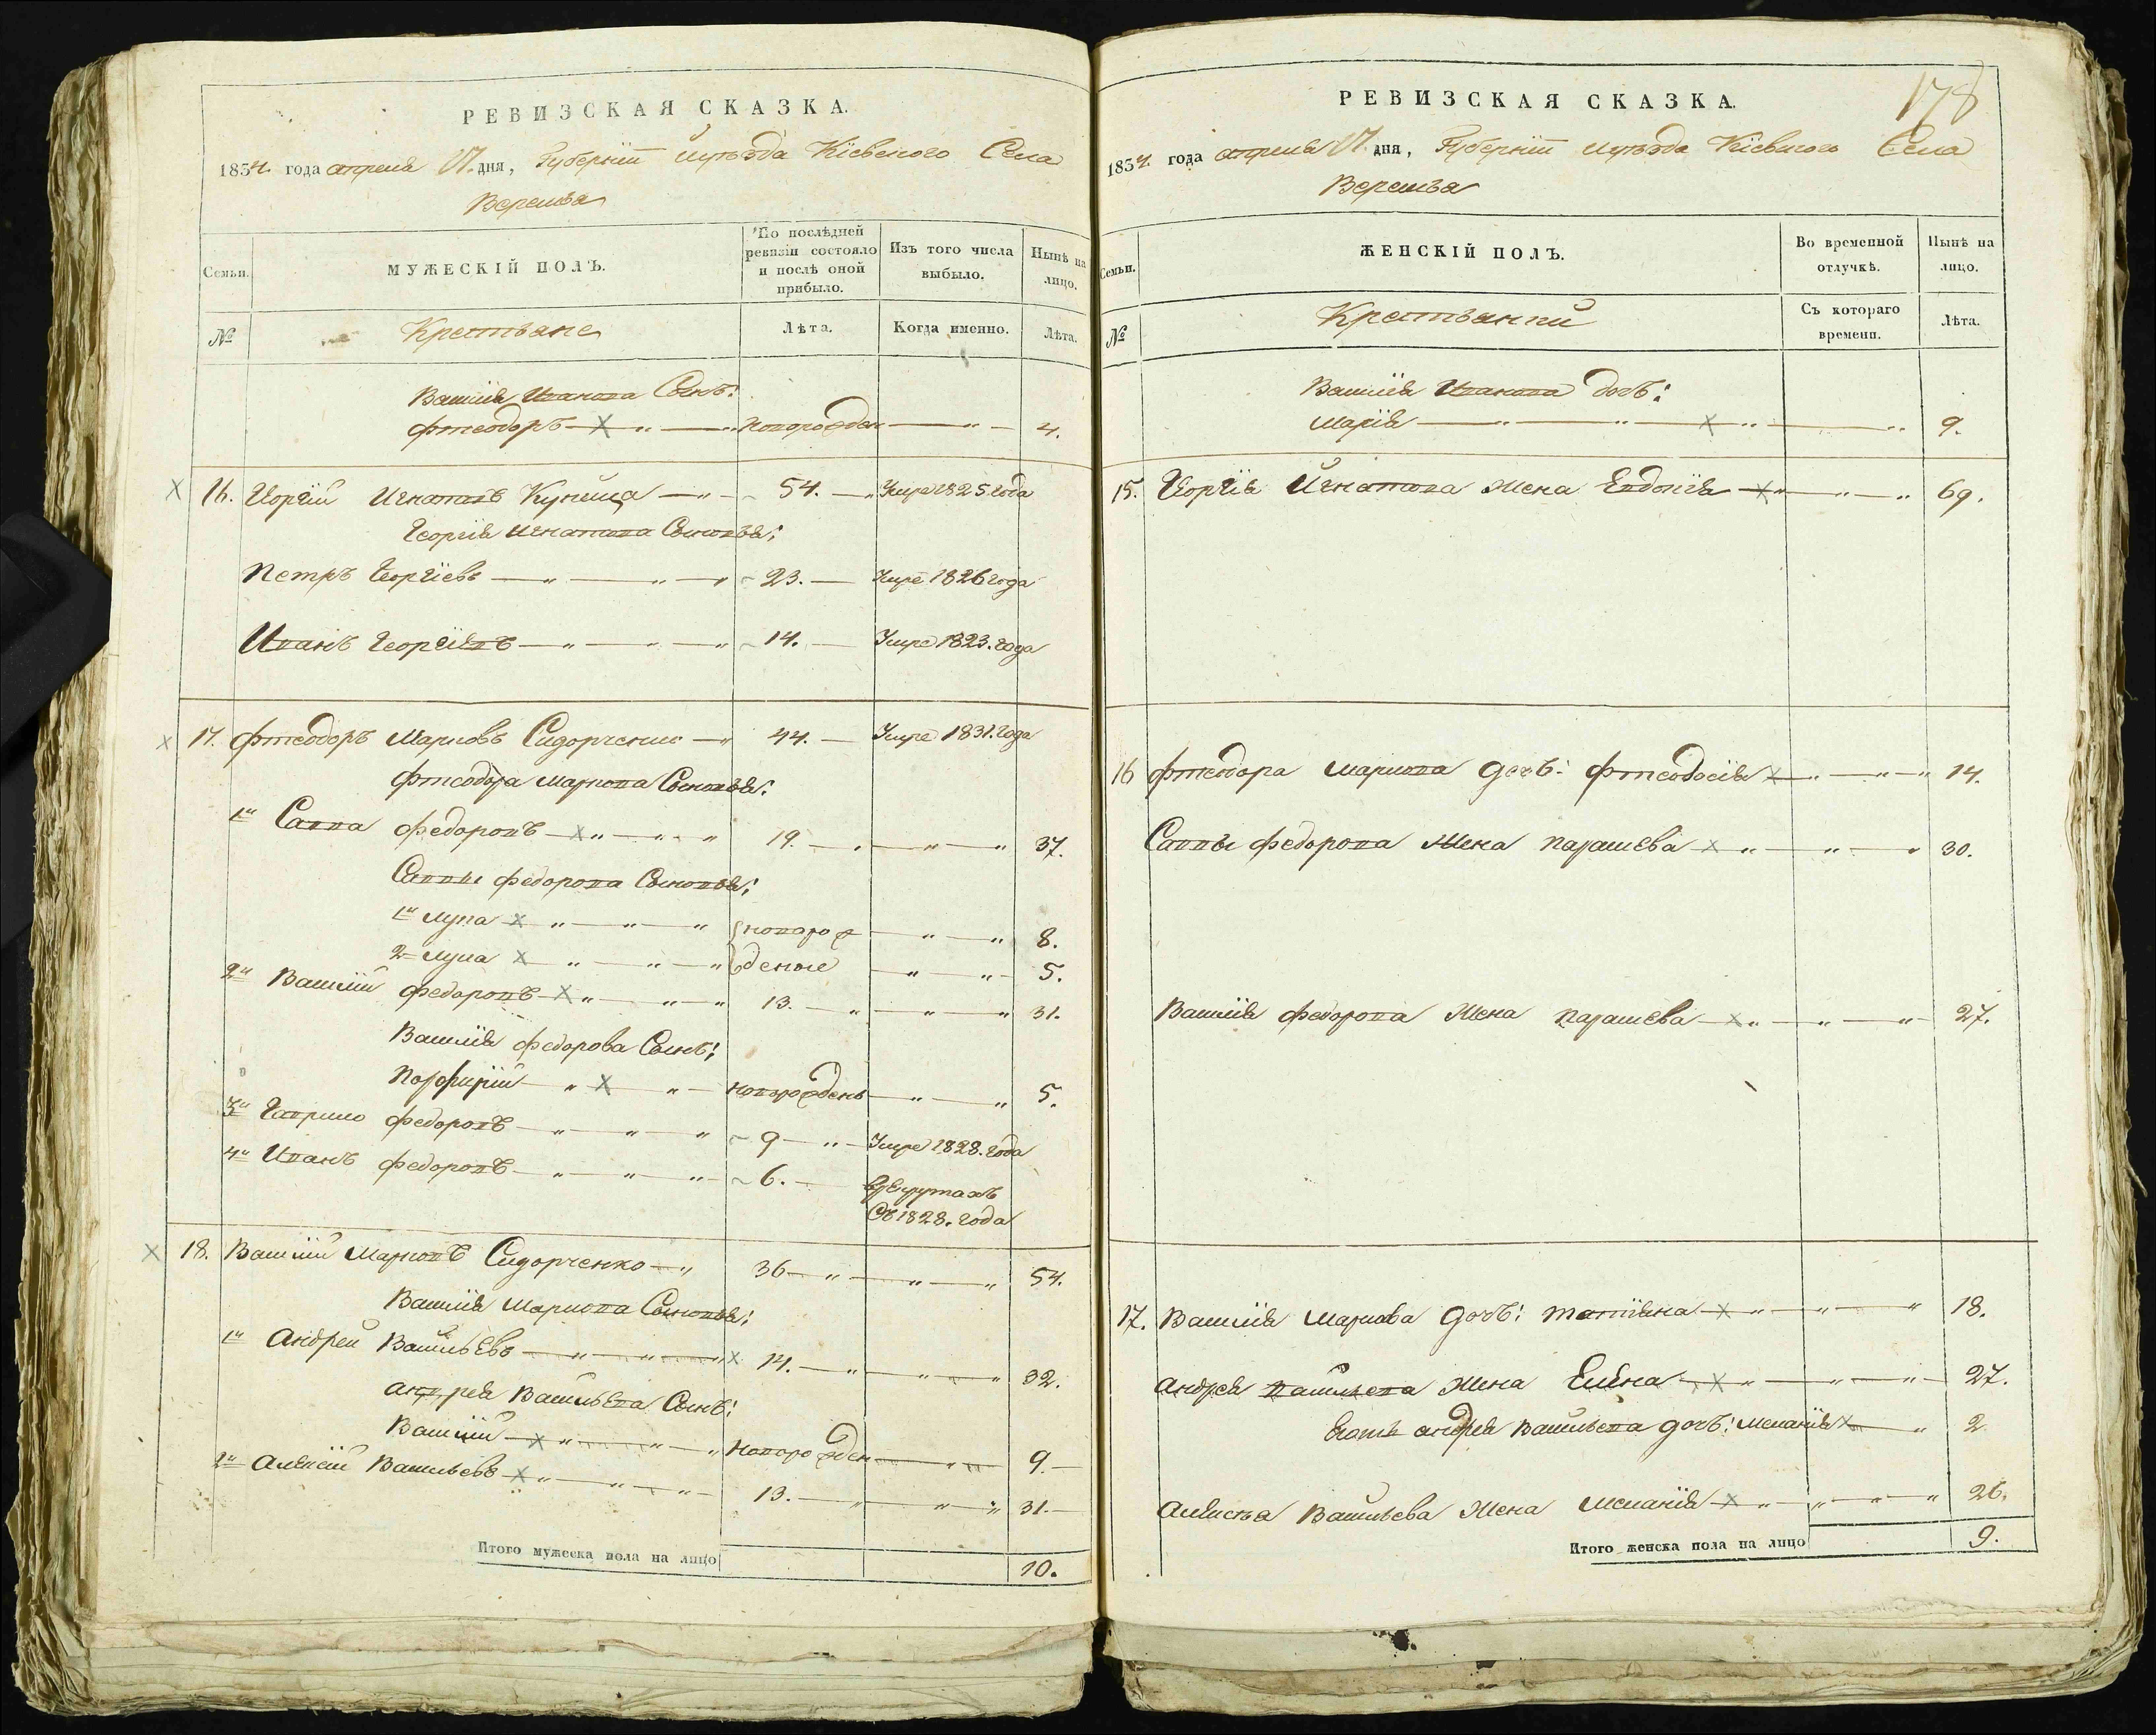 РЕВИЗСКАЯ СКАЗКА.
1834 года апреля 17. дня, Губерніи и уѣзда Кіевского Села
Семьи.
МУЖЕСКІЙ ПОЛЪ.
По послѣдней ревизіи состояло и послѣ оной прибыло.
Изъ того числа выбыло.
Нынѣ на лицо.
№
Крестьяне
Лѣта.
Когда именно.
Лѣта.
Василія Иванова Сынъ:
Фтеодоръ — новорожден — 4.
16. Георгій Игнатовъ Куница — 54. — Умре 1825 года
Георгія Игнатова Сыновья:
Петръ Георгіевъ — 23. — Умре 1826 года
Иванъ Георгіевъ — 14. — Умре 1823. года
17. Фтеодоръ Марковъ Сидорченко — 44. — Умре 1831. года
Фтеодора Маркова Сыновья:
1й Савва Федоровъ — 19. — 37.
Саввы Федорова Сыновья:
1й Лупа — новорож — 8.
2й Лупа — деные — 5.
2й Василій Федоровъ — 13. — 31.
Василія Федорова Сынъ:
Порфирій — новорождень — 5.
3й Гаврило Федоровъ — 9 — Умре 1828. года
4й Иванъ Федоровъ — 6. — в рекрутахъ
Съ 1828. года
18. Василій Марковъ Сидорченко — 36 — 54.
Василія Маркова Сыновья:
1й Андрей Васильевъ — 14. — 32.
Андрея Васильева Сынъ:
Василій — новорожден — 9. —
2й Алексій Васильевъ — 13. — 31. —
Итого мужеска пола на лицо 10.
178
РЕВИЗСКАЯ СКАЗКА.
1834 года апреля 17. дня, Губерніи и уѣзда Кіевского Села
Семьи.
ЖЕНСКІЙ ПОЛЪ.
Во временной отлучкѣ.
Нынѣ на лицо.
№
Крестьянки
Съ котораго времени.
Лѣта.
Василія Иванова дочь:
Марія — 9.
15. Георгія Игнатова Жена Евдокія — 69.
16 Фтеодора Маркова дочь: Фтеодосія — 14.
Саввы Федорова Жена Параскева — 30.
Василія Федорова Жена Параскева — 27.
17. Василія Маркова дочь: Татіяна — 18.
Андрея Васильева Жена Елена — 27.
Его андрея Васильева дочь: Меланія — 2
Алексѣя Васильева Жена Меланія — 26.
Итого женска пола на лицо 9.